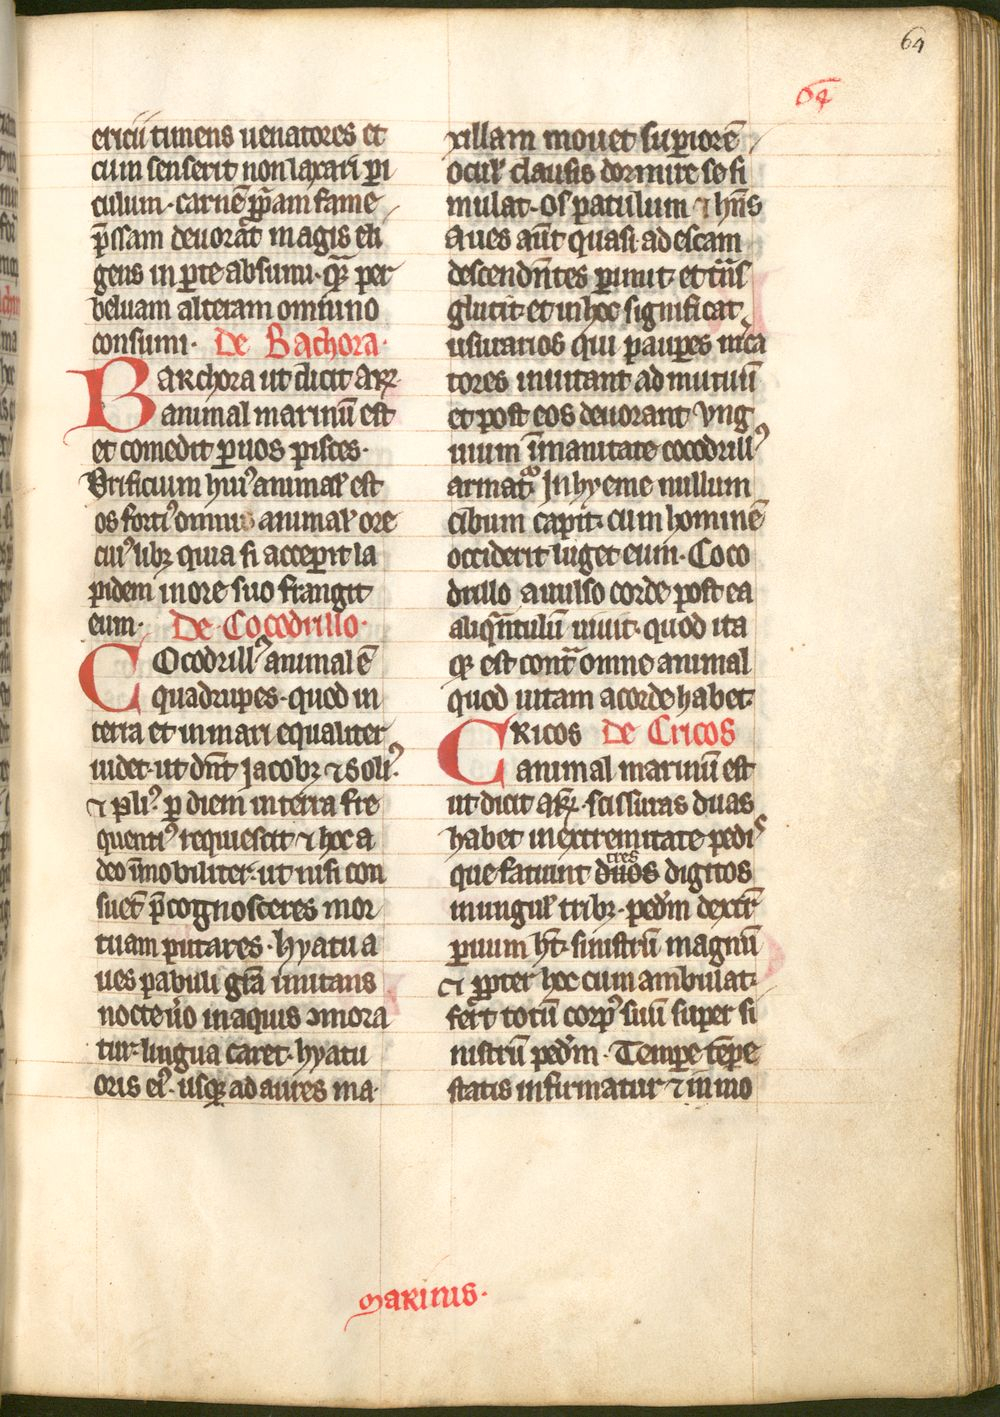 64
64
ericii timens uenatores et
cum senserit non laxari pi
culum · carnē ꝓp̄am fame
p̄ssam deuorāt magis eli
gens in ꝑte absumi · qͣ ꝑ per
beluam alteram omnino
consumi · De Bachora ·
BARchora ut dicit Arꝝ
animal marinū est
et comedit ꝑuos pisces ·
Orificium huiꝰ animaƚ est
os fortiꝰ omnis animaƚ ore
cuiꝰlibꝫ quia si acceꝑit la
pidem in ore suo frangit
eum · De · Cocodrillo ·
COcodrillꝰ animal ē
quadrupes · quod in
terra et in mari equaliter
uidet · ut dn̄t Jacobꝫ ⁊ Soliꝰ
⁊ pliꝰ · ꝑ diem in terra fre
quentiꝰ requiescit ⁊ hoc a
deo īmobiliter · ut nisi con
suet̄ p̄cognosceres mor
tuam putares · hyatu a
ues pabuli gr̄a inuitans
nocte u̅o in aquis ꝯmora
tur · lingua caret · hyatu
oris eiꝰ · usqꝫ ad aures ma ·
xillam mouet suꝑiorē
ocuƚ clausis dormire se si
mulat · os patulum ⁊ hn̄s
Aues aūt quasi ad escam
descendn̄tes ꝑimit · et eas
glutit · et in hoc significat
usurarios qui pauꝑes m̄ca
tores inuitant ad mutuū
et post eos deuorant vng
uium īmanitate cocodrillꝰ
armatͦ Jn hyeme nullum
cibum capit · cum hominē
occiderit luget eum · Coco
drillo auulso corde post ea
aliqͣntulū uiuit · quod ita
qꝫ est contͣ omne animal
quod uitam a corde habet ·
CRicos De Cricos
animal marinū est
ut dicit aꝝ · scissuras duas
habet in extremitate pediˢ
que faciunt duos tres digitos
in unguƚ tribꝫ · ped̄m dextrū
ꝑuum ht̄ · sinistrū magnū
⁊ ꝓpter hoc cum ambulat ·
fert totū corpꝰ suū super si
nistrū ped̄m · Tempe tēpe
statis infirmatur ⁊ in mo
Marinus ·